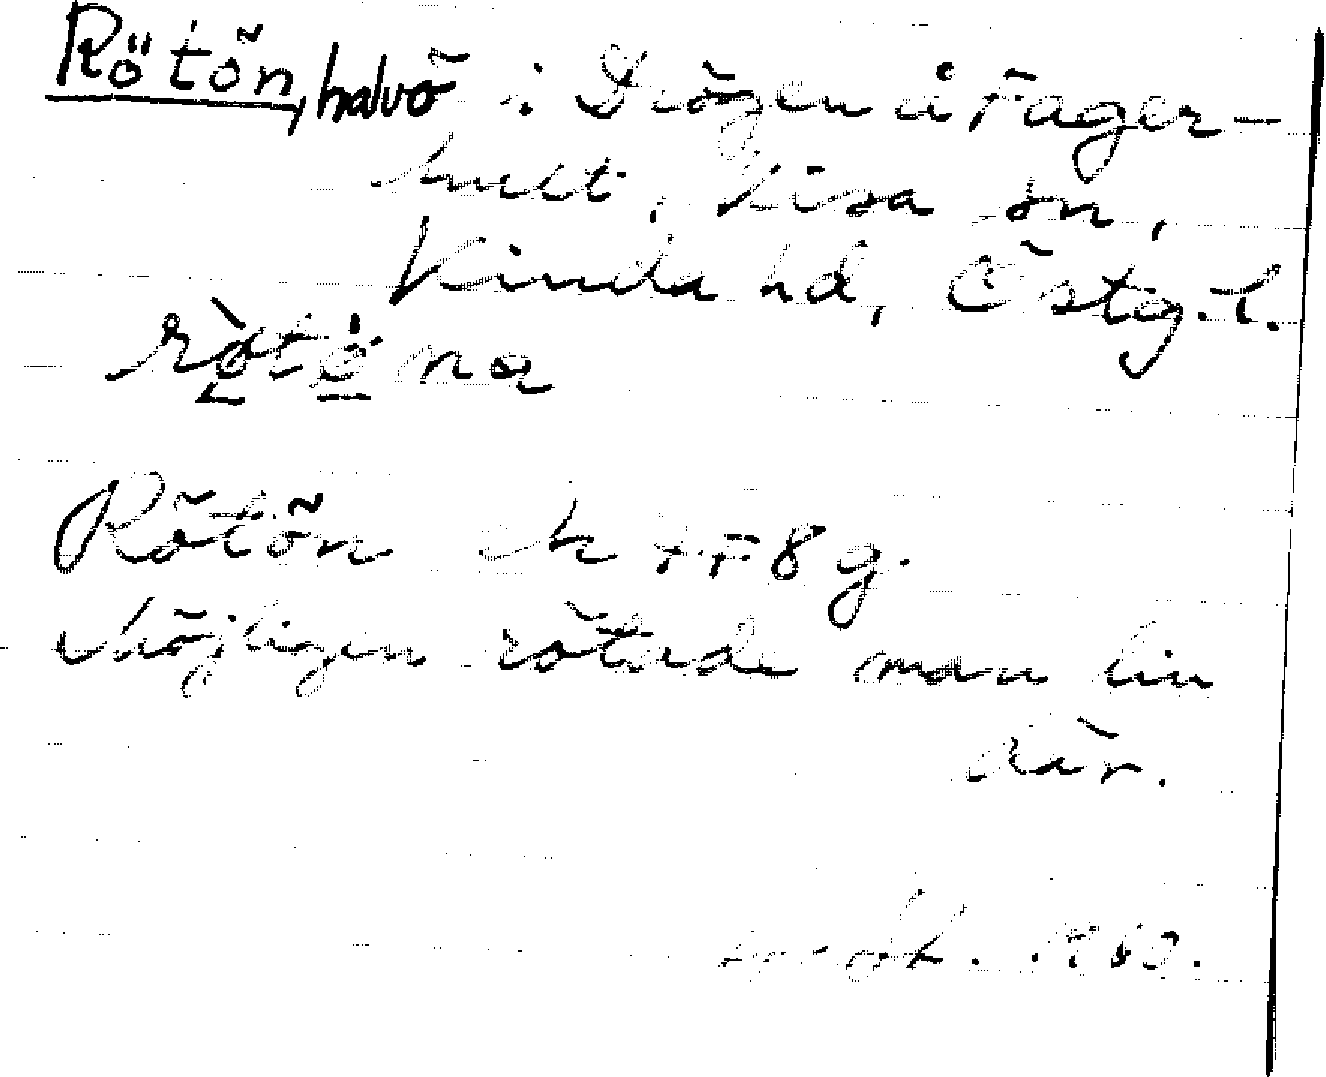 Rötön, halvö i Drögen å Fager-
hult, Kisa sn,
Kinda hd, Östg. l.
rötö na
Rötön ek FF8g.
Möjligen rötade man lin
där.
okt. 1960.